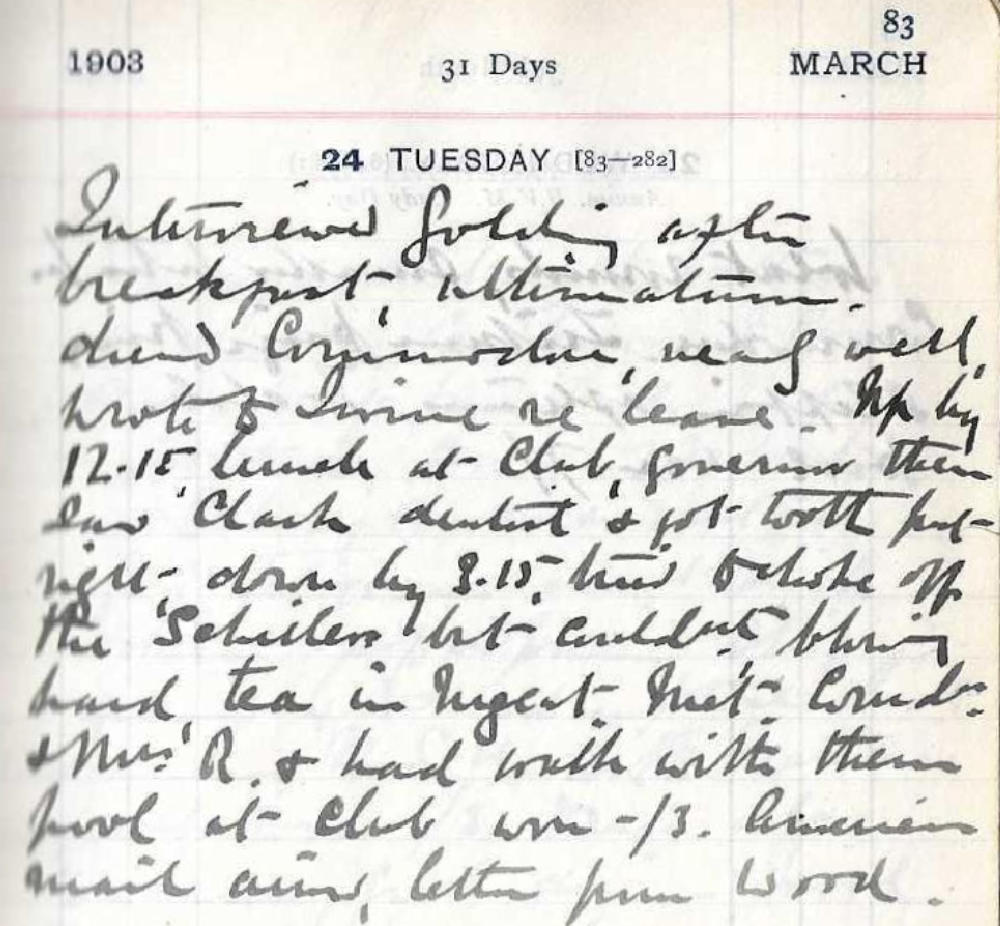 83
1903 31 Days MARCH
24 TUESDAY [83—282]
Interviewed Golding after
breakfast, ultimatum.
Commodore, nearly well,
wrote to Irvine re leave. Up by
12.15, lunch at Club, governor there
saw Clark dentist & got tooth put
right, down by 3.15, tried to choke off
the Schillers but couldn't, blowing
hard, tea in Regent. Met Comdr.
& Mrs. R. & had walk with them
pool at Club won -/3. American
mail arrived, letter from Wood.